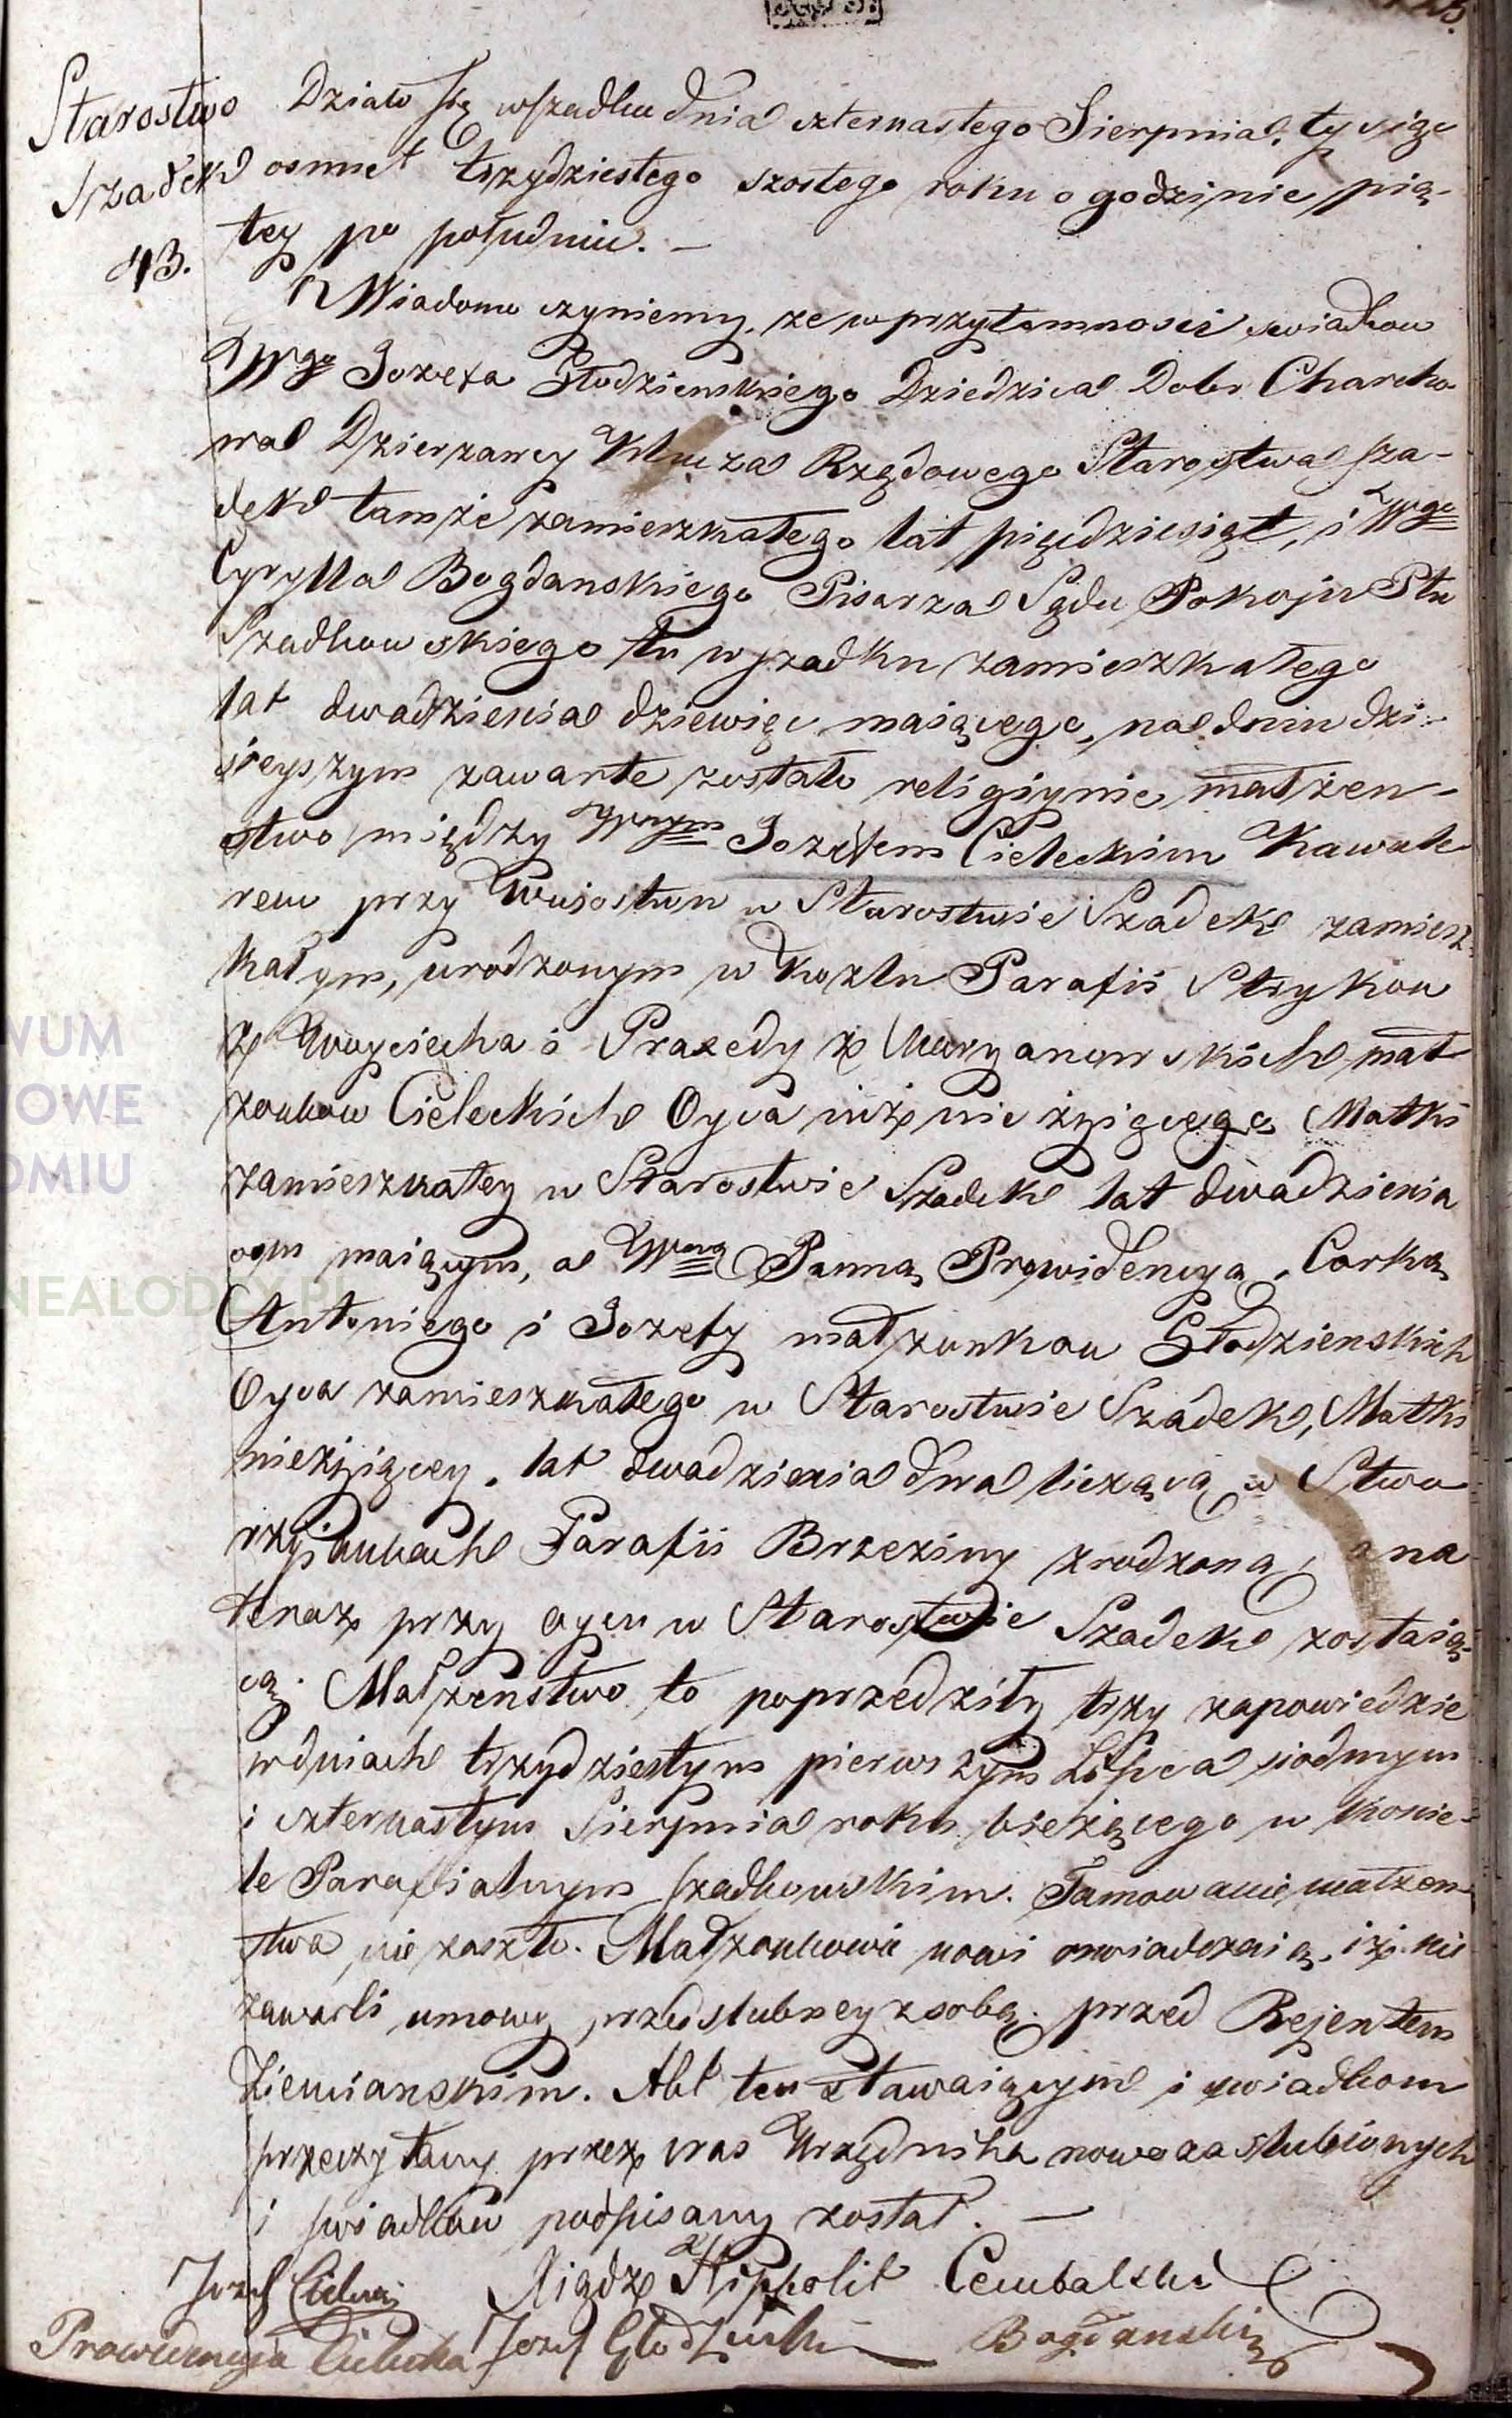 Starostwo
Szadek
43.
Działo się w Szadku dnia czternastego Sierpnia, tysiąc
osmset trzydziestego szostego roku o godzinie pią-
tey po południu. —
Wiadomo czyniemy, że w przytomnosci swiadkow
Wgo Jozefa Głodzienskiego Dziedzica Dobr Charcho-
wa Dzierzawcy Klucza Rządowego Starostwa Sza-
dek tamże zamieszkałego lat pięcdziesiąt, i Wgo
Cyrylla Bogdanskiego Pisarza Sądu Pokoju Ptu
Szadkowskiego tu w Szadku zamieszkałego
lat dwadziescia dziewięc maiącego, na dniu dzi-
sieyszym zawarte zostało religiynie małżen-
stwo między Wnym Jozefem Cieleckim Kawale-
rem przy Wujostwu w Starostwie Szadek zamiesz-
kałym, urodzonym w Kozlu Parafii Strykow
z Woyciecha i Praxedy z Maryanowskich mał-
zonkow Cieleckich Oyca iuż nie żyiącego Matki
zamieszkałey w Starostwie Szadek lat dwadziescia
osm maiącym, a Wną Panną Prowidencyą, Corką
Antoniego i Jozefy małzonkow Głodzienskich
Oyca zamieszkałego w Starostwie Szadek, Matki
nieżyiącey, lat dwadziescia dwa liczącą w Stwo-
rzyiankach Parafii Brzeziny zrodzoną, a na
teraz przy oycu w Starostwie Szadek zostaią-
cą. Małżenstwo to poprzedziły trzy zapowiedzie
w dniach trzydziestym pierwszym Lipca siodmym
i czternastym Sierpnia roku bieżącego w Koscie-
le Parafialnym Szadkowskim. Tamowanie małżen-
stwa nie zaszło. Małżonkowie nowi oswiadczaią, iż nie
zawarli umowy przedslubney z sobą przed Rejentem
Ziemianskim. Akt ten stawaiącym i swiadkom
przeczytany przez nas Urzędnika nowozaslubionych
i swiadkow podpisany został. —
Jozef Cielecki Xiądz Hippolit Cembalski
Prowidencyja Cielecka Jozef Głodzienski Bogdanski